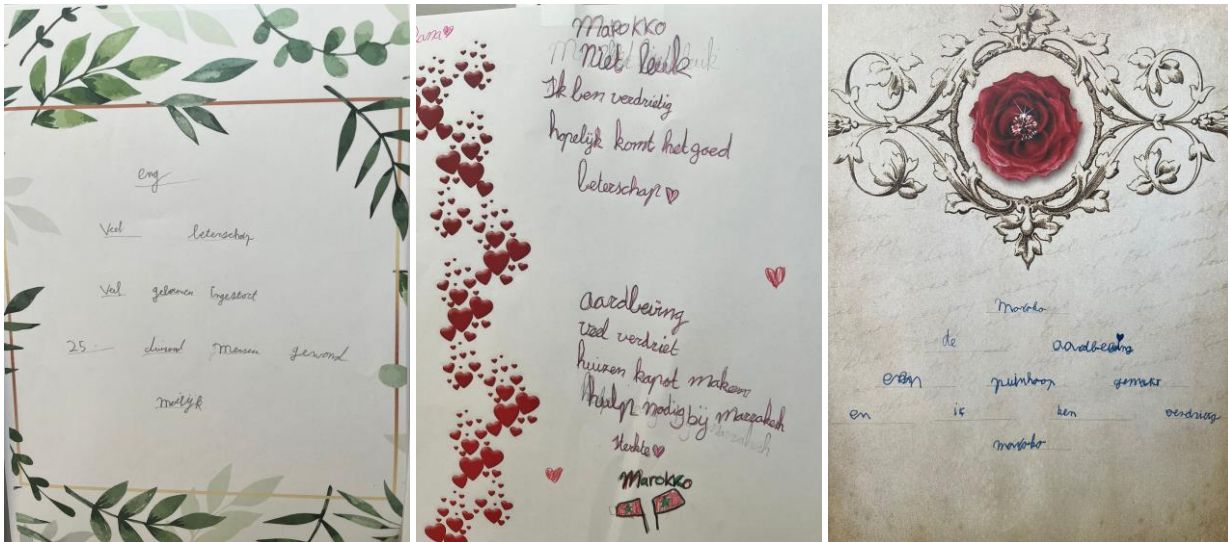 eng
Veel beterschap
Veel gebouwen ingestort
25 duizend mensen gewond
Moeilijk
Marokko
Niet leuk
Ik ben verdrietig
hopelijk komt het goed
beterschap
aardbeving
veel verdriet
huizen kapot maken
hulp nodig bij Marrakesh
Sterkte
Marokko
Maroko
de aardbeving
een puinhoop gemakt
en ik ben verdrietig
maroko